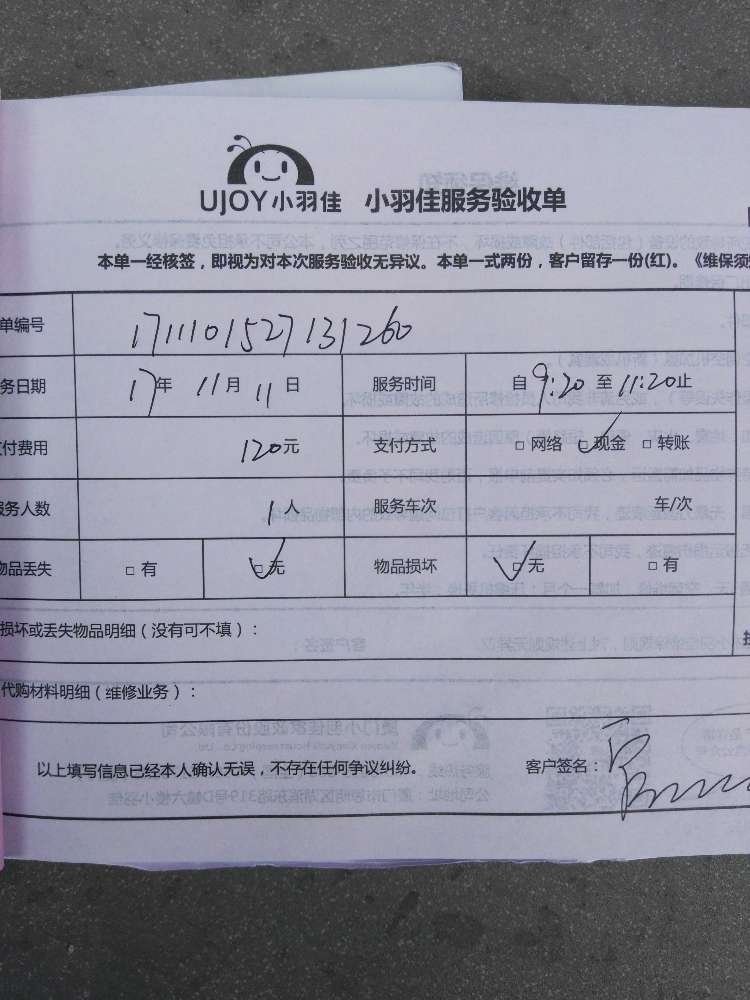 UJOY小羽佳 小羽佳服务验收单
本单一经核签，即视为对本次服务验收无异议。本单一式两份，客户留存一份(红)。《维保须
单编号 1711101527131260
务日期 17年 11月 11日 服务时间 自9:20至11:20止
付费用 120元 支付方式 □ 网络 □现金 □ 转账
服务人数 1人 服务车次 车/次
物品丢失 □ 有 □无 物品损坏 □无 □ 有
损坏或丢失物品明细（没有可不填）：
代购材料明细（维修业务）：
以上填写信息已经本人确认无误，不存在任何争议纠纷。 客户签名：